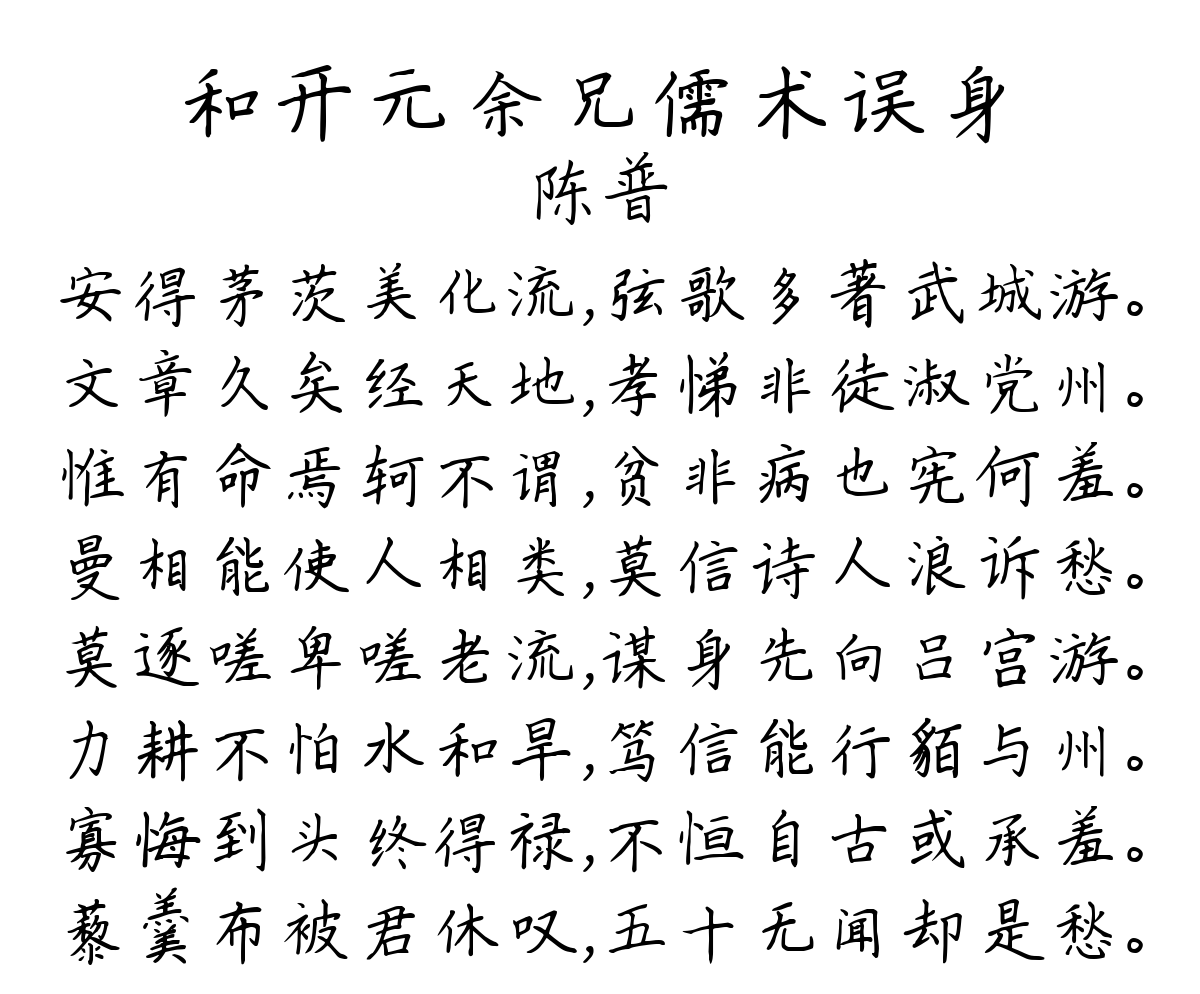 和开元余兄儒术误身
陈普
安得茅茨美化流,弦歌多著武城游。
文章久矣经天地,孝悌非徒淑党州。
惟有命焉轲不谓,贫非病也宪何羞。
曼相能使人相类,莫信诗人浪诉愁。
莫逐嗟卑嗟老流,谋身先向吕宫游。
力耕不怕水和旱,笃信能行貊与州。
寡悔到头终得禄,不恒自古或承羞。
藜羹布被君休叹,五十无闻却是愁。